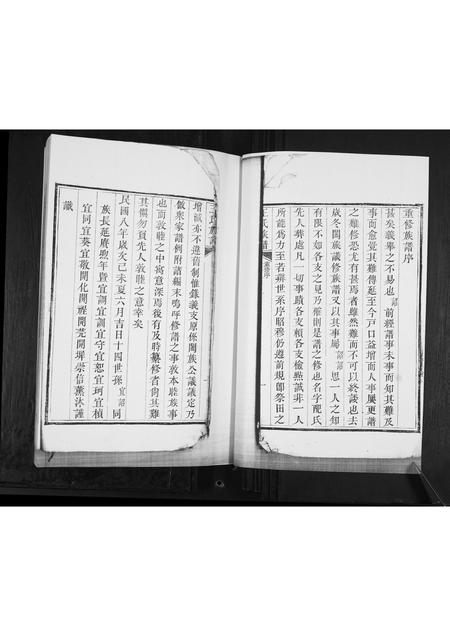 重修族譜序
甚矣義舉之不易也詔前經譜事未事而知其難及
事而愈覺其難傳延至今戶口益增而人事屢更譜
之難修恐尤有甚焉者雖然難而不可以終諉也去
歲冬闔族議修族譜又以其事屬詔詔思一人之知
有限不如各支之見乃確則是譜之修也名字配氏
先人葬處凡一切事蹟各支稽各支檢點誠非一人
所能為力至若冊世系序昭穆仍遵前規卽祭田之
王氏族譜
增減亦不違舊制惟錄義支原係闔族公議議定乃
倣衆家譜例附諸編末嗚呼修譜之事敦本睦族事
也而敦睦之中寓意深焉後有及時纂修者尙其難
其慎勿負先人敦睦之意幸矣
民國八年歲次己未夏六月吉日十四世孫宜詔同
族長延慶聖年暨宜訓宜守宜恕宜珂宜楨
宜同宜葵宜敬開化開祥開堯開墀崇信薰沐謹
識